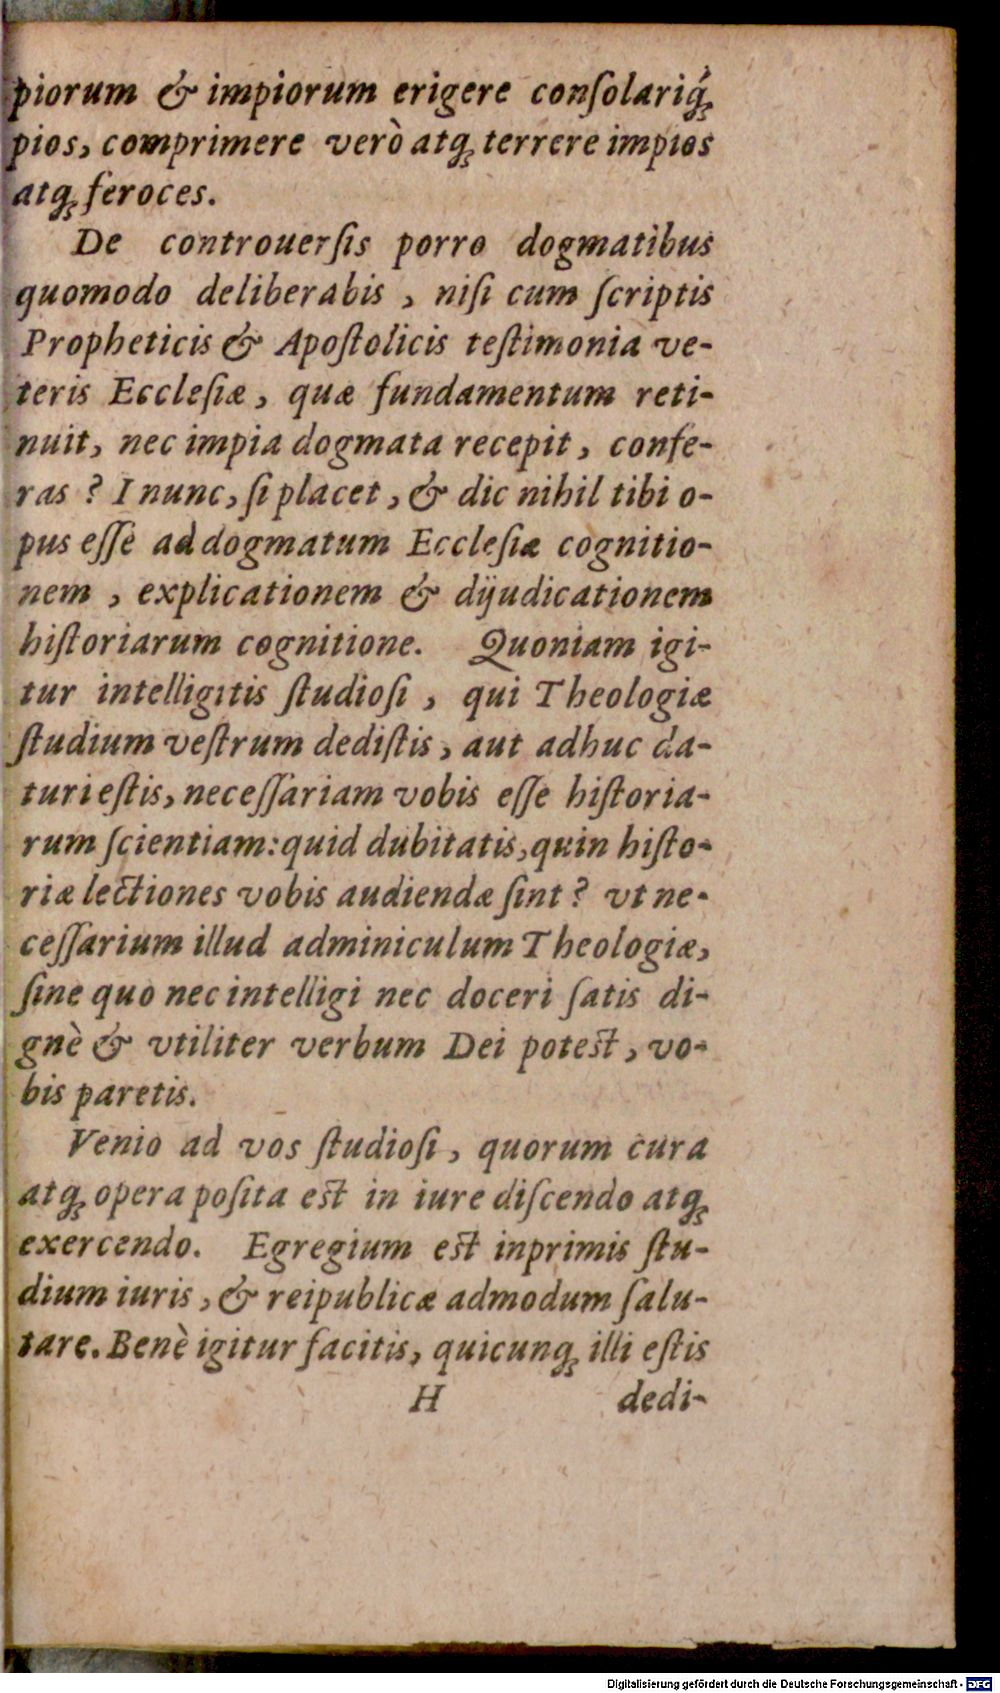 piorum & impiorum erigere conſolariq́;
pios, comprimere verò atq; terrere impios
atq; feroces.
De controuerſis porro dogmatibus
quomodo deliberabis, niſi cum ſcriptis
Propheticis & Apoſtolicis teſtimonia ve-
teris Eccleſiæ, quæ fundamentum reti-
nuit, nec impia dogmata recepit, confe-
ras? I nunc, ſi placet, & dic nihil tibi o-
pus eſſe ad dogmatum Eccleſiæ cognitio-
nem, explicationem & dijudicationem
hiſtoriarum cognitione. Quoniam igi-
tur intelligitis ſtudioſi, qui Theologiæ
ſtudium veſtrum dediſtis, aut adhuc da-
turi eſtis, neceſſariam vobis eſſe hiſtoria-
rum ſcientiam: quid dubitatis, quin hiſto-
riæ lectiones vobis audiendæ ſint? vt ne-
ceſſarium illud adminiculum Theologiæ,
ſine quo nec intelligi nec doceri ſatis di-
gnè & vtiliter verbum Dei poteſt, vo-
bis paretis.
Venio ad vos ſtudioſi, quorum cura
atq; opera poſita eſt in iure diſcendo atq;
exercendo. Egregium eſt inprimis ſtu-
dium iuris, & reipublicæ admodum ſalu-
tare. Benè igitur facitis, quicunq; illi eſtis
H dedi-
Digitalisierung gefördert durch die Deutsche Forschungsgemeinschaft - DFG